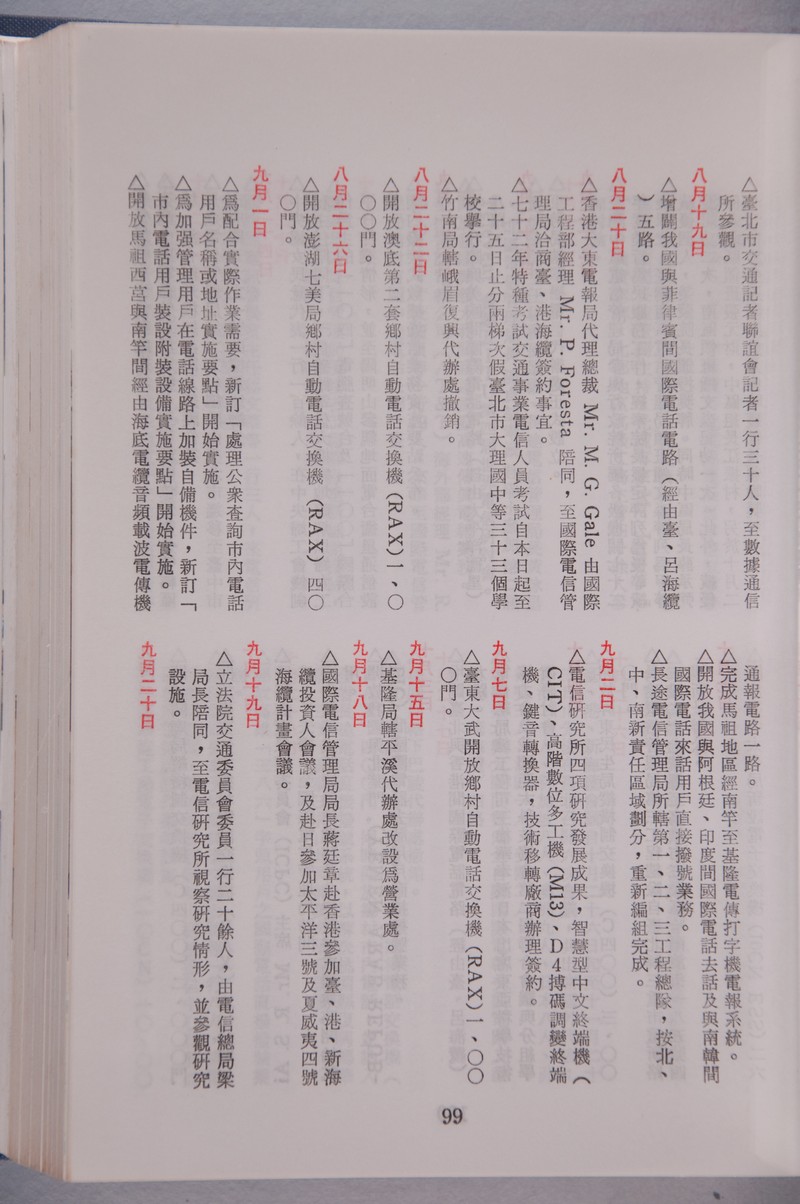 △臺北市交通記者聯誼會記者一行三十人，至數據通信
所參觀。
八月十九日
△增闢我國與菲律賓間國際電話電路（經由臺、呂海纜
）五路。
八月二十日
△香港大東電報局代理總裁 Mr. M. G. Gale 由國際
工程部經理 Mr. P. Foresta 陪同，至國際電信管
理局洽商臺、港海纜簽約事宜。
△七十二年特種考試交通事業電信人員考試自本日起至
二十五日止分兩梯次假臺北市大理國中等三十三個學
校舉行。
△竹南局轄峨眉復興代辦處撤銷。
八月二十二日
△開放澳底第二套鄉村自動電話交換機（RAX）一、〇
〇〇門。
八月二十六日
△開放澎湖七美局鄉村自動電話交換機（RAX）四〇
〇門。
九月一日
△爲配合實際作業需要，新訂「處理公衆查詢市內電話
用戶名稱或地址實施要點」開始實施。
△爲加强管理用戶在電話線路上加裝自備機件，新訂「
市內電話用戶裝設附裝設備實施要點」開始實施。
△開放馬祖西莒與南竿間經由海底電纜音頻載波電傳機
通報電路一路。
△完成馬祖地區經南竿至基隆電傳打字機電報系統。
△開放我國與阿根廷、印度間國際電話去話及與南韓間
國際電話來話用戶直接撥號業務。
△長途電信管理局所轄第一、二、三工程總隊，按北、
中、南新責任區域劃分，重新編組完成。
九月二日
△電信研究所四項研究發展成果，智慧型中文終端機（
CIT）、高階數位多工機（M13）、D4搏碼調變終端
機、鍵音轉換器，技術移轉廠商辦理簽約。
九月七日
△臺東大武開放鄉村自動電話交換機（RAX）一、〇〇
〇門。
九月十五日
△基隆局轄平溪代辦處改設爲營業處。
九月十八日
△國際電信管理局局長蔣廷章赴香港參加臺、港、新海
纜投資人會議，及赴日參加太平洋三號及夏威夷四號
海纜計畫會議。
九月十九日
△立法院交通委員會委員一行二十餘人，由電信總局梁
局長陪同，至電信研究所視察研究情形，並參觀研究
設施。
九月二十日
99